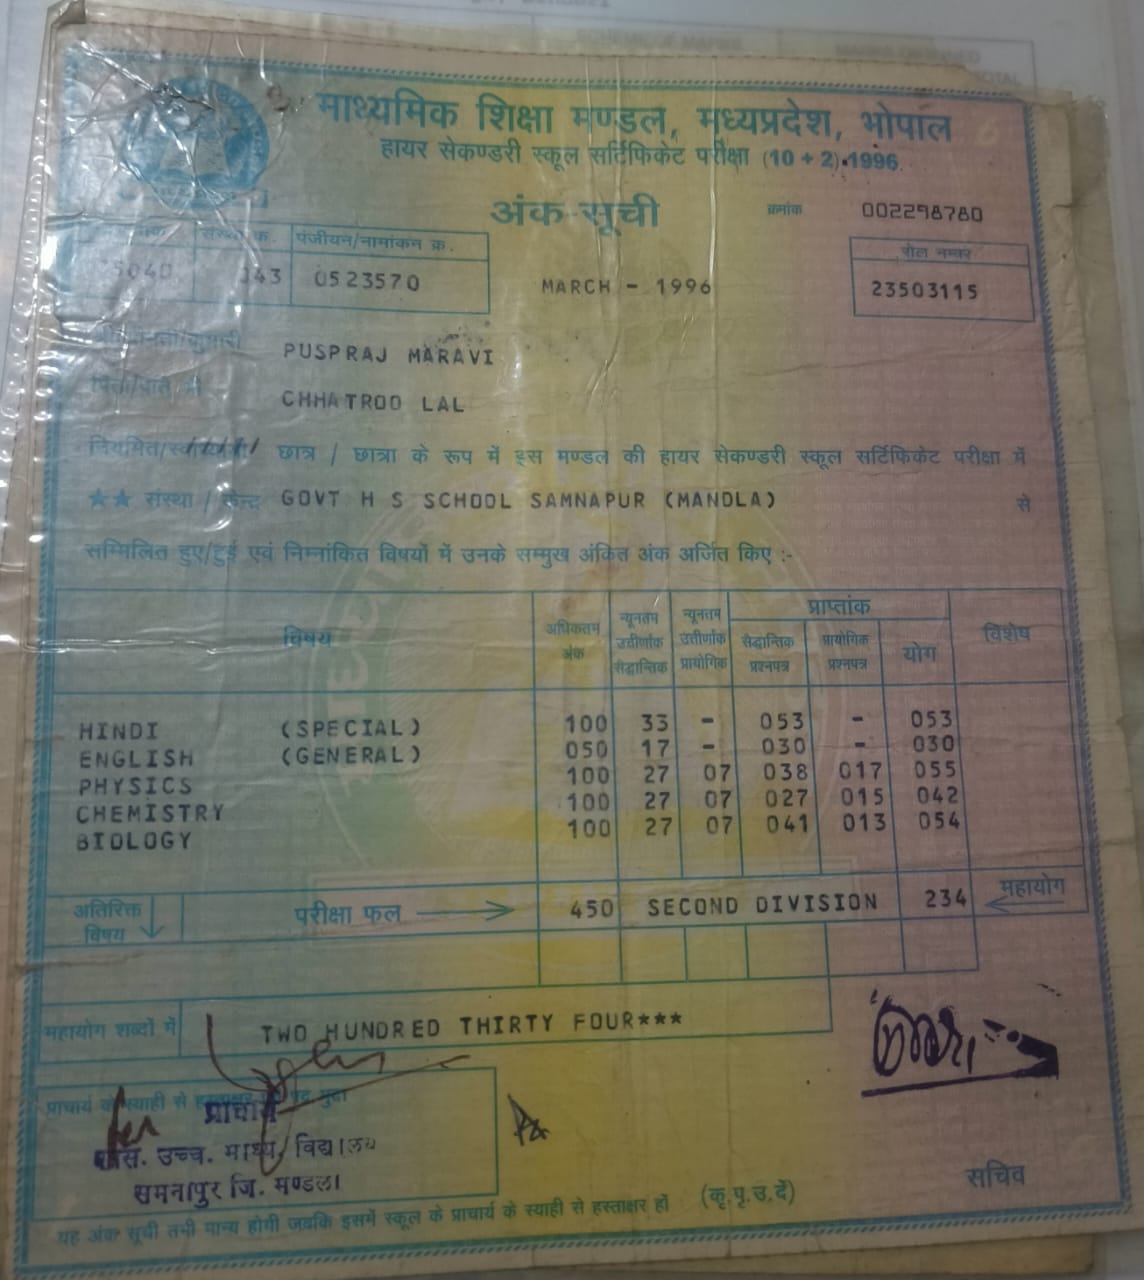 माध्यमिक शिक्षा मण्डल, मध्यप्रदेश, भोपाल
हायर सेकण्डरी स्कूल सर्टिफिकेट परीक्षा (10 + 2) 1996
अंक-सूची
क्रमांक 002298780
संस्था क्र. पंजीयन/नामांकन क्र. रोल नम्बर
5040 143 0523570 MARCH - 1996 23503115
PUSPRAJ MARAVI
CHHATROO LAL
नियमित/ छात्र / छात्रा के रूप में इस मण्डल की हायर सेकण्डरी स्कूल सर्टिफिकेट परीक्षा में
★★ संस्था / केन्द्र GOVT H S SCHOOL SAMNAPUR (MANDLA) से
सम्मिलित हुए/हुई एवं निम्नांकित विषयों में उनके सम्मुख अंकित अंक अर्जित किए :-
विषय अधिकतम अंक न्यूनतम उत्तीर्णांक सैद्धान्तिक न्यूनतम उत्तीर्णांक प्रायोगिक प्राप्तांक विशेष
सैद्धान्तिक प्रश्नपत्र प्रायोगिक प्रश्नपत्र योग
HINDI (SPECIAL) 100 33 - 053 - 053
ENGLISH (GENERAL) 050 17 - 030 - 030
PHYSICS 100 27 07 038 017 055
CHEMISTRY 100 27 07 027 015 042
BIOLOGY 100 27 07 041 013 054
अतिरिक्त विषय परीक्षा फल 450 SECOND DIVISION 234 महायोग
महायोग शब्दों में TWO HUNDRED THIRTY FOUR***
प्राचार्य के स्याही से हस्ताक्षर
प्राचार्य
उच्च. माध्य. विद्यालय
समनापुर जि. मण्डला
सचिव
यह अंक सूची तभी मान्य होगी जबकि इसमें स्कूल के प्राचार्य के स्याही से हस्ताक्षर हों (कृ.पृ.उ.दें)